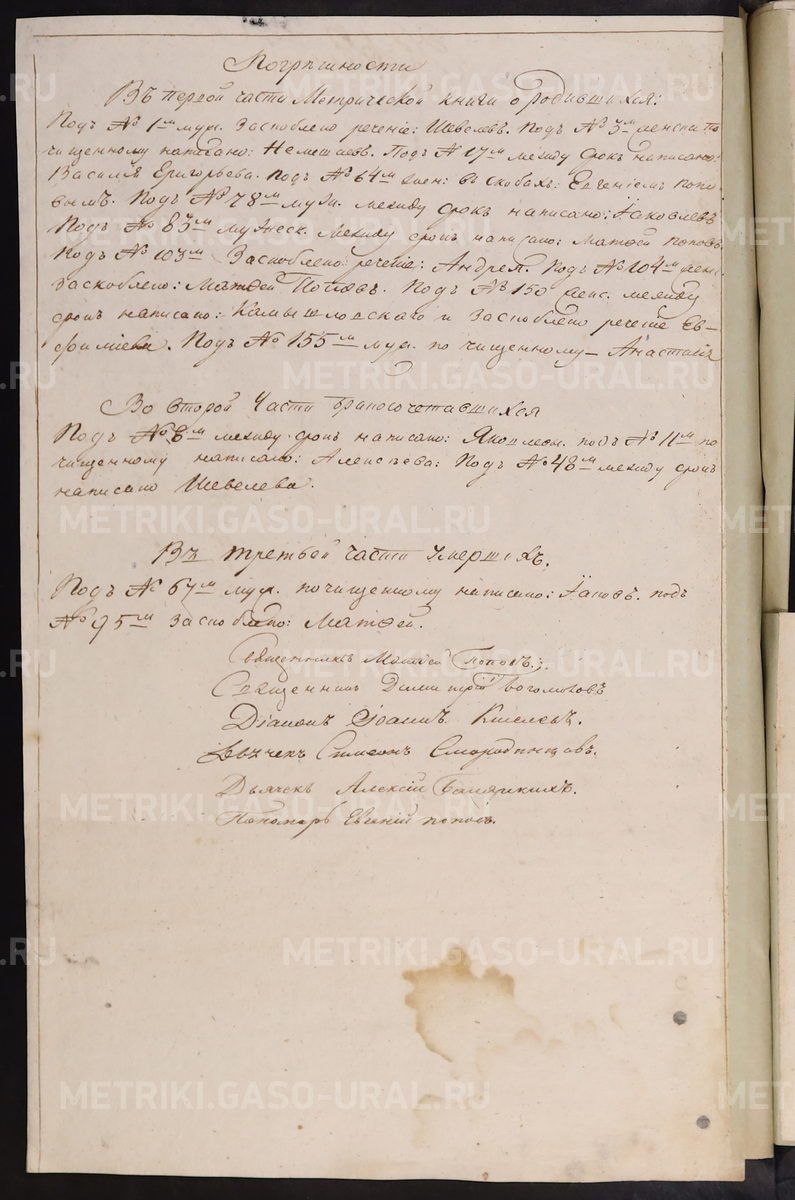 Погрѣшности
Въ первой части Метрической книги о родившихся:
Подъ № 1м муж. Заскоблено речение: Шевелевъ. Подъ № 3м женски по
чищенному написано: Немешаевъ. Подъ № 17м между срокъ написано:
Василя Григорьева. Подъ № 64м жен: въ скобахъ: Евгениемъ Попо
вымъ. Подъ № 78м муж. между срокъ написано: Іаковлевъ
Подъ № 83м мужеск. между срокъ написано: Матѳей Поповъ.
Подъ № 103м Заскоблено: речение: Андрея. Подъ № 104м женс.
заскоблено: Матѳей Поповъ. Подъ № 150 женс. между
срокъ написано: Камышловскаго и Заскоблено речение Ев-
фимиева. Подъ № 155м муж. по чищенному - Анастасія
Во второй Части бракосочетавшихся
Подъ № 8м между срокъ написано: Яковлевн. подъ № 11м по
чищенному написано: Алексѣева: Подъ № 48м между срокъ
написано Шевелева.
Въ третьей части Умершихъ.
Подъ № 67м муж. почищенному написано: Іаковъ. подъ
№ 95м Заскоблено: Матѳей.
Священникъ Матѳей Поповъ.
Священникъ Димитрій Богомоловъ
Діаконъ Іоаннъ Киселевъ.
Дьячекъ Симеонъ Смородинцовъ.
Дьячекъ Алексій
Пономарь Евгеній Поповъ.
METRIKI.GASO-URAL.RU